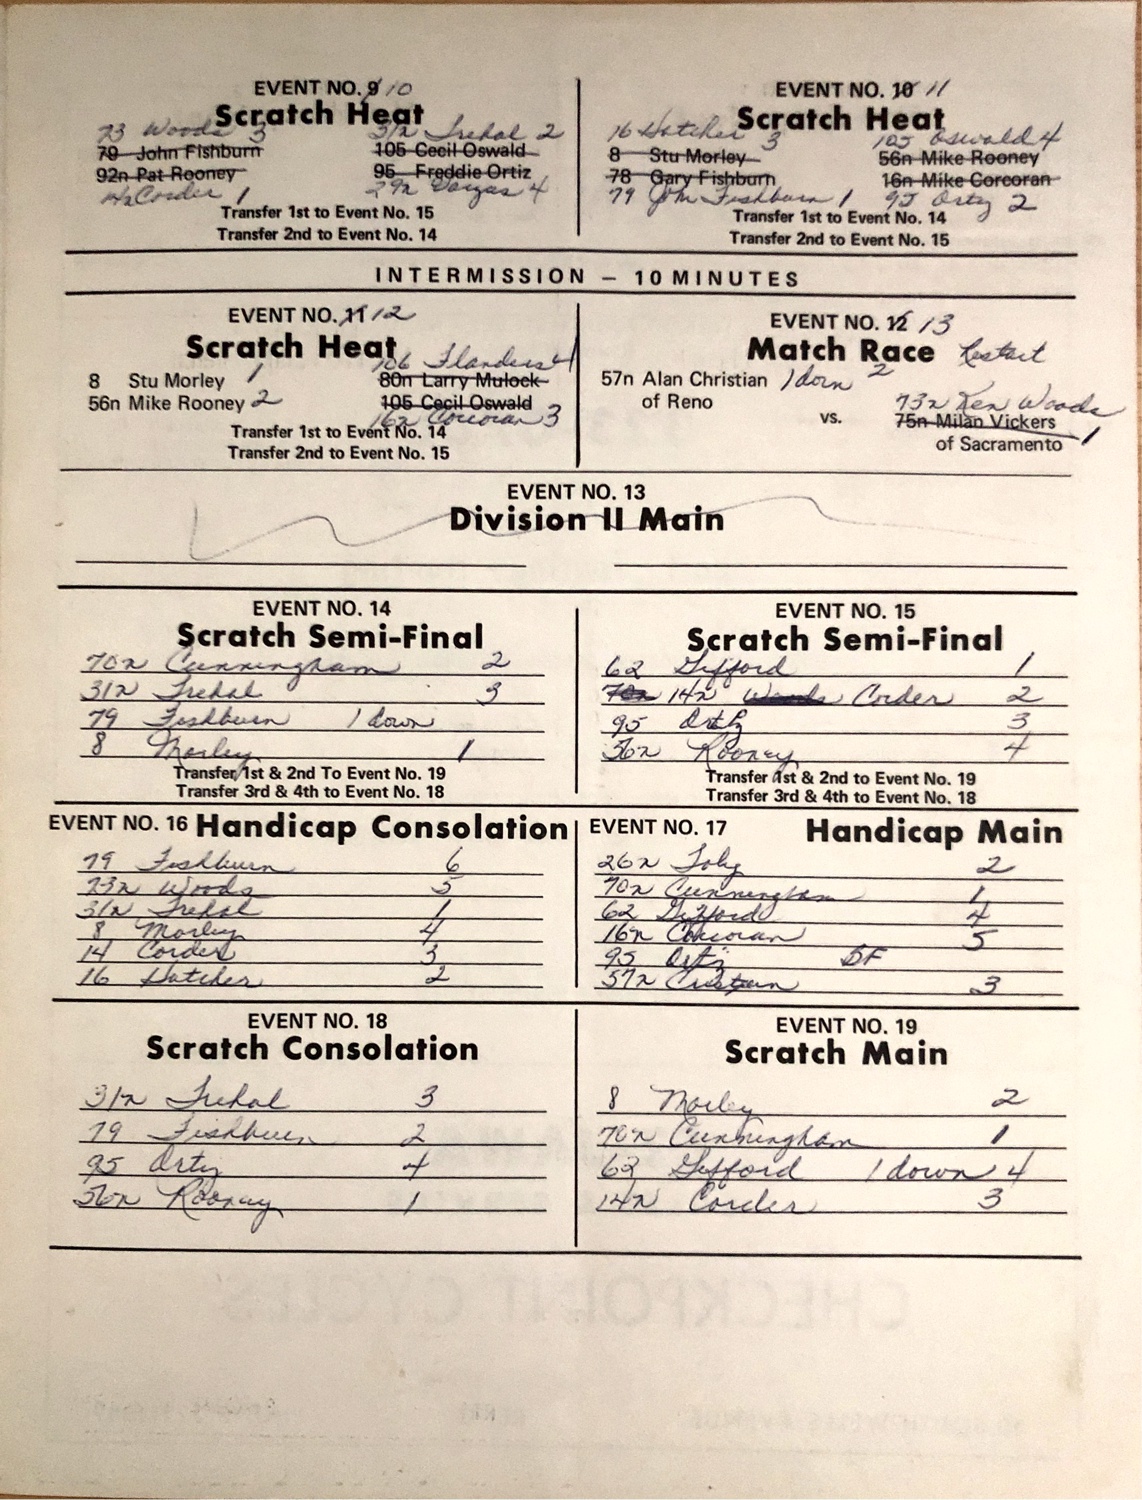 EVENT NO. 9 10
Scratch Heat
73 Woods 3 31n Trehal 2
79 John Fishburn 105 Cecil Oswald
92n Pat Rooney 95 Freddie Ortiz
Corder 1 29n Vargas 4
Transfer 1st to Event No. 15
Transfer 2nd to Event No. 14
EVENT NO. 10 11
Scratch Heat
16 Hatcher 3 105 Oswald 4
8 Stu Morley 56n Mike Rooney
78 Gary Fishburn 16n Mike Corcoran
79 John Fishburn 1 95 Ortiz 2
Transfer 1st to Event No. 14
Transfer 2nd to Event No. 15
INTERMISSION – 10 MINUTES
EVENT NO. 11 12
Scratch Heat
106 Flanders 4
8 Stu Morley 1 80n Larry Mulock
56n Mike Rooney 2 105 Cecil Oswald
16n Corcoran 3
Transfer 1st to Event No. 14
Transfer 2nd to Event No. 15
EVENT NO. 12 13
Match Race Restart
57n Alan Christian 1 down 2
of Reno
73n Ken Woods
vs. 75n Milan Vickers 1
of Sacramento
EVENT NO. 13
Division II Main
EVENT NO. 14
Scratch Semi-Final
70n Cunningham 2
31n Trehal 3
79 Fishburn 1 down
8 Morley 1
Transfer 1st & 2nd To Event No. 19
Transfer 3rd & 4th to Event No. 18
EVENT NO. 15
Scratch Semi-Final
62 Gifford 1
70n 14n Woods Corder 2
95 Ortiz 3
56n Rooney 4
Transfer 1st & 2nd to Event No. 19
Transfer 3rd & 4th to Event No. 18
EVENT NO. 16 Handicap Consolation
79 Fishburn 6
73n Woods 5
31n Trehal 1
8 Morley 4
14 Corder 3
16 Hatcher 2
EVENT NO. 17 Handicap Main
26n Toby 2
70n Cunningham 1
62 Gifford 4
16n Corcoran 5
95 Ortiz DF
57n 3
EVENT NO. 18
Scratch Consolation
31n Trehal 3
79 Fishburn 2
95 Ortiz 4
56n Rooney 1
EVENT NO. 19
Scratch Main
8 Morley 2
70n Cunningham 1
62 Gifford 1 down 4
14n Corder 3